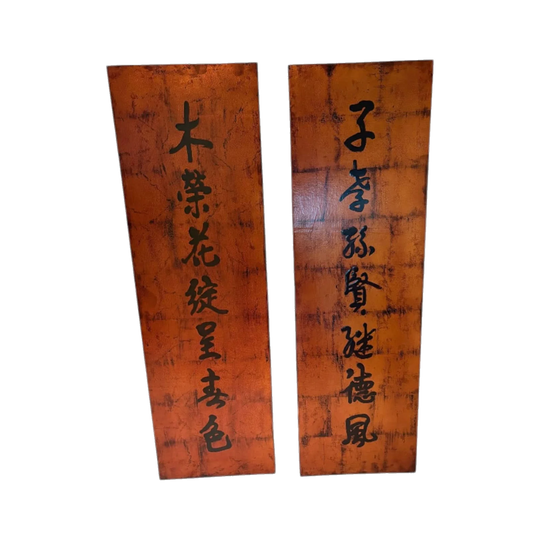 子孝孫賢継德風
木榮花綻呈春色